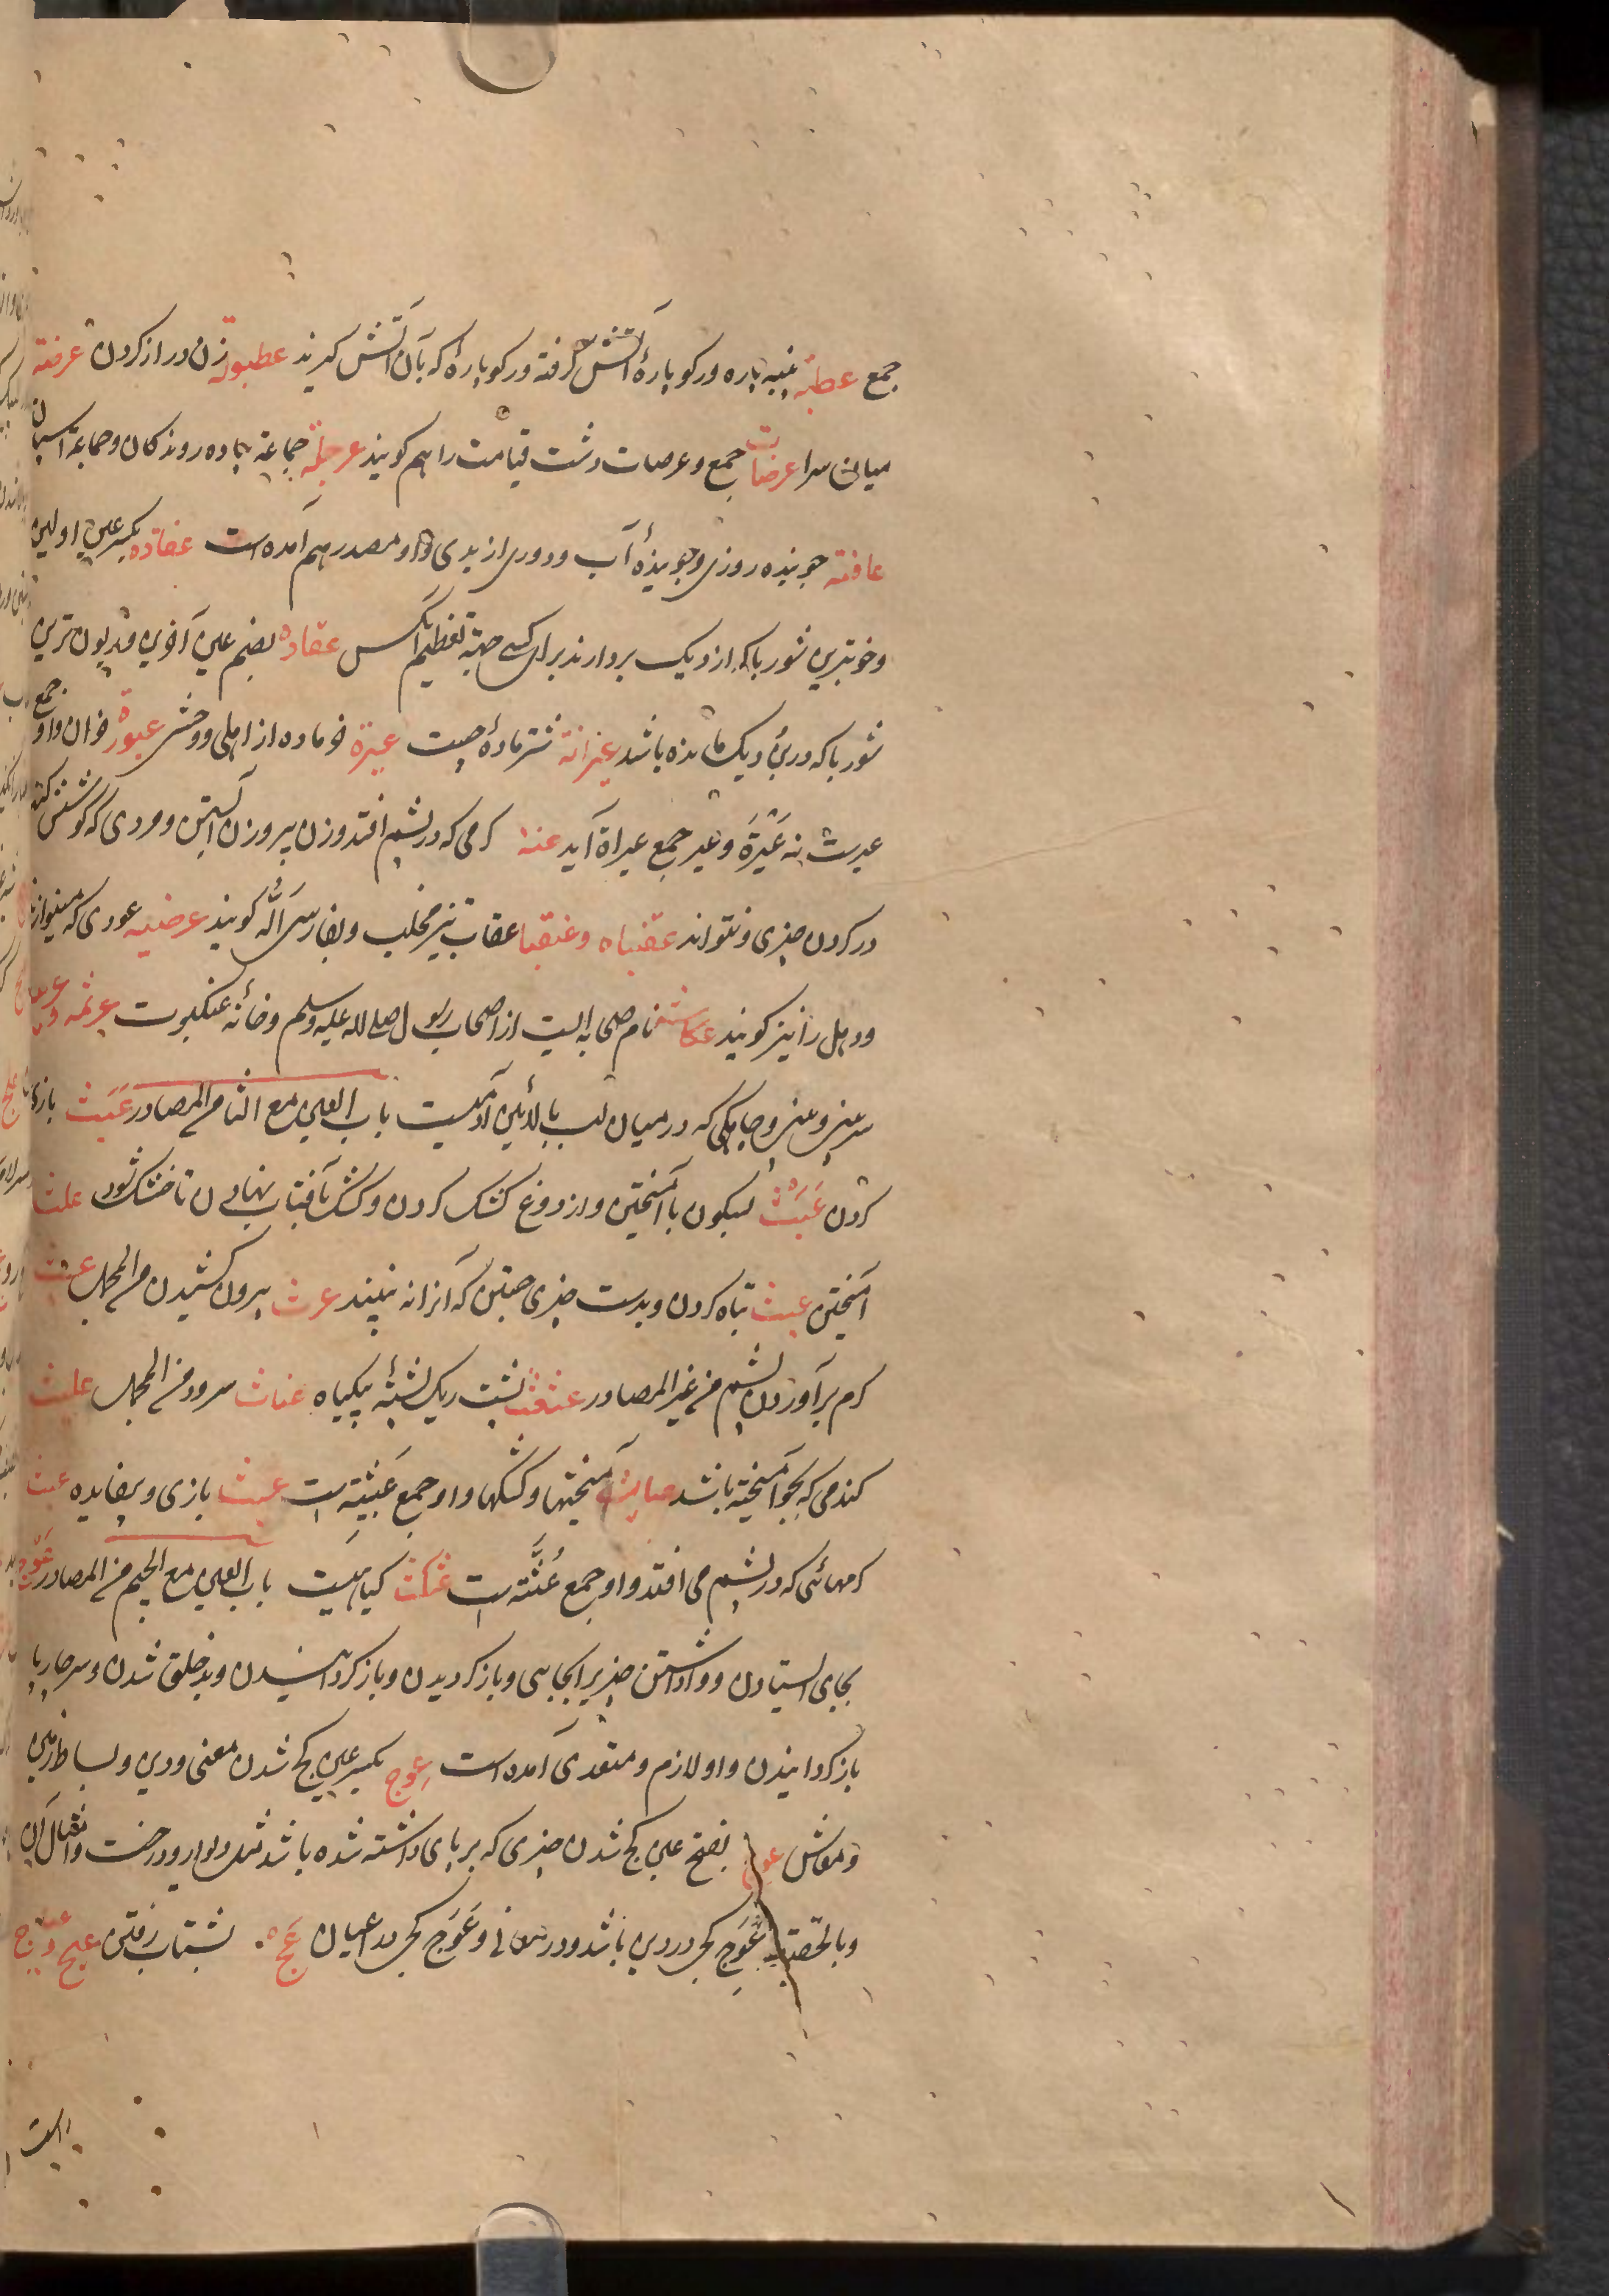 جمع عطبه پنبه پاره ورکو پارهٔ آتش گرفته ورکو پاره که بآن آتش گیرند عطبوله زن دراز کردن عرصة
میان سرا عرصات جمع و عرصات دشت قیامت را هم کویند عرجلة جماعة پیاده روندکان و جماعة اسپان
عافیة جوینده روزی و جویندهٔ آب و دوری از بدی و او مصدر هم آمده است عفاده بکسر عین اولین
و خوبترین شوربا که از دیک بردارند برای کسی جهة تعظیم آنکس عفاده بضم عین آخرین و زبون ترین
شوربا که در بن دیک مانده باشد عیرانة شتر مادهٔ چست عیرة خر ماده از اهلی و وحشی عیورة خران و او جمع
عیرست نه عَیْرَة و عیر جمع عیراة آید عثة کرمی که در پشم افتد و زن پیر و زن آبستن و مردی که کوشش کند
در کردن چیزی و نتواند عقنباه و عنقبا عقاب تیز مخلب و بفارسی اَلُه کویند عرضیه عودی که مینوازند
و دهل را نیز کویند عکاشة نام صحابه ایست از اصحاب رسول صلی الله علیه وسلم و خانهٔ عنکبوت عرتمه
سر بینی و جایکی که در میان لب بالائین آدمیست باب العین مع الثا من المصادر عَبَث بازی
کردن عَبْث بسکون با آمیختن و از دوغ کشک کردن و کشک بآفتاب نهادن تا خشک شود علث
آمیختن عیث تباه کردن و بدست چیزی جستن که آنرا نه بینند عرث بیرون کشیدن من المجمل عث
کرم برآوردن پشم من غیر المصادر عثعث پشت ریک پشتهٔ بیکیاه عثاث سرود من المجمل علیث
کندمی که بجو آمیخته باشد عبایث آمیختها و کشکها و او جمع عَبیثه است عبث بازی و بیفایده عث
کرمهائی که در پشم می افتد و او جمع عُثَّه است عنکث کیاهیست باب العین مع الجیم من المصادر عَوْج
بجای ایستادن و واداشتن چیزیرا بجایی و باز کردیدن و باز کردانیدن و بدخلق شدن و سر چارپا
باز کردانیدن و او لازم و متعدی آمده است عِوَج بکسر عین کج شدن معنی و دین و بساط زمین
و معاش عوج بفتح عین کج شدن چیزی که بر پای داشته شده باشد مثل دیوار و درخت و امثال آن
و بالحقیقه عِوَج کجی در دین باشد و در معانی و عَوَج کجی در اعیان عَج بشتاب رفتن عج و عجیج